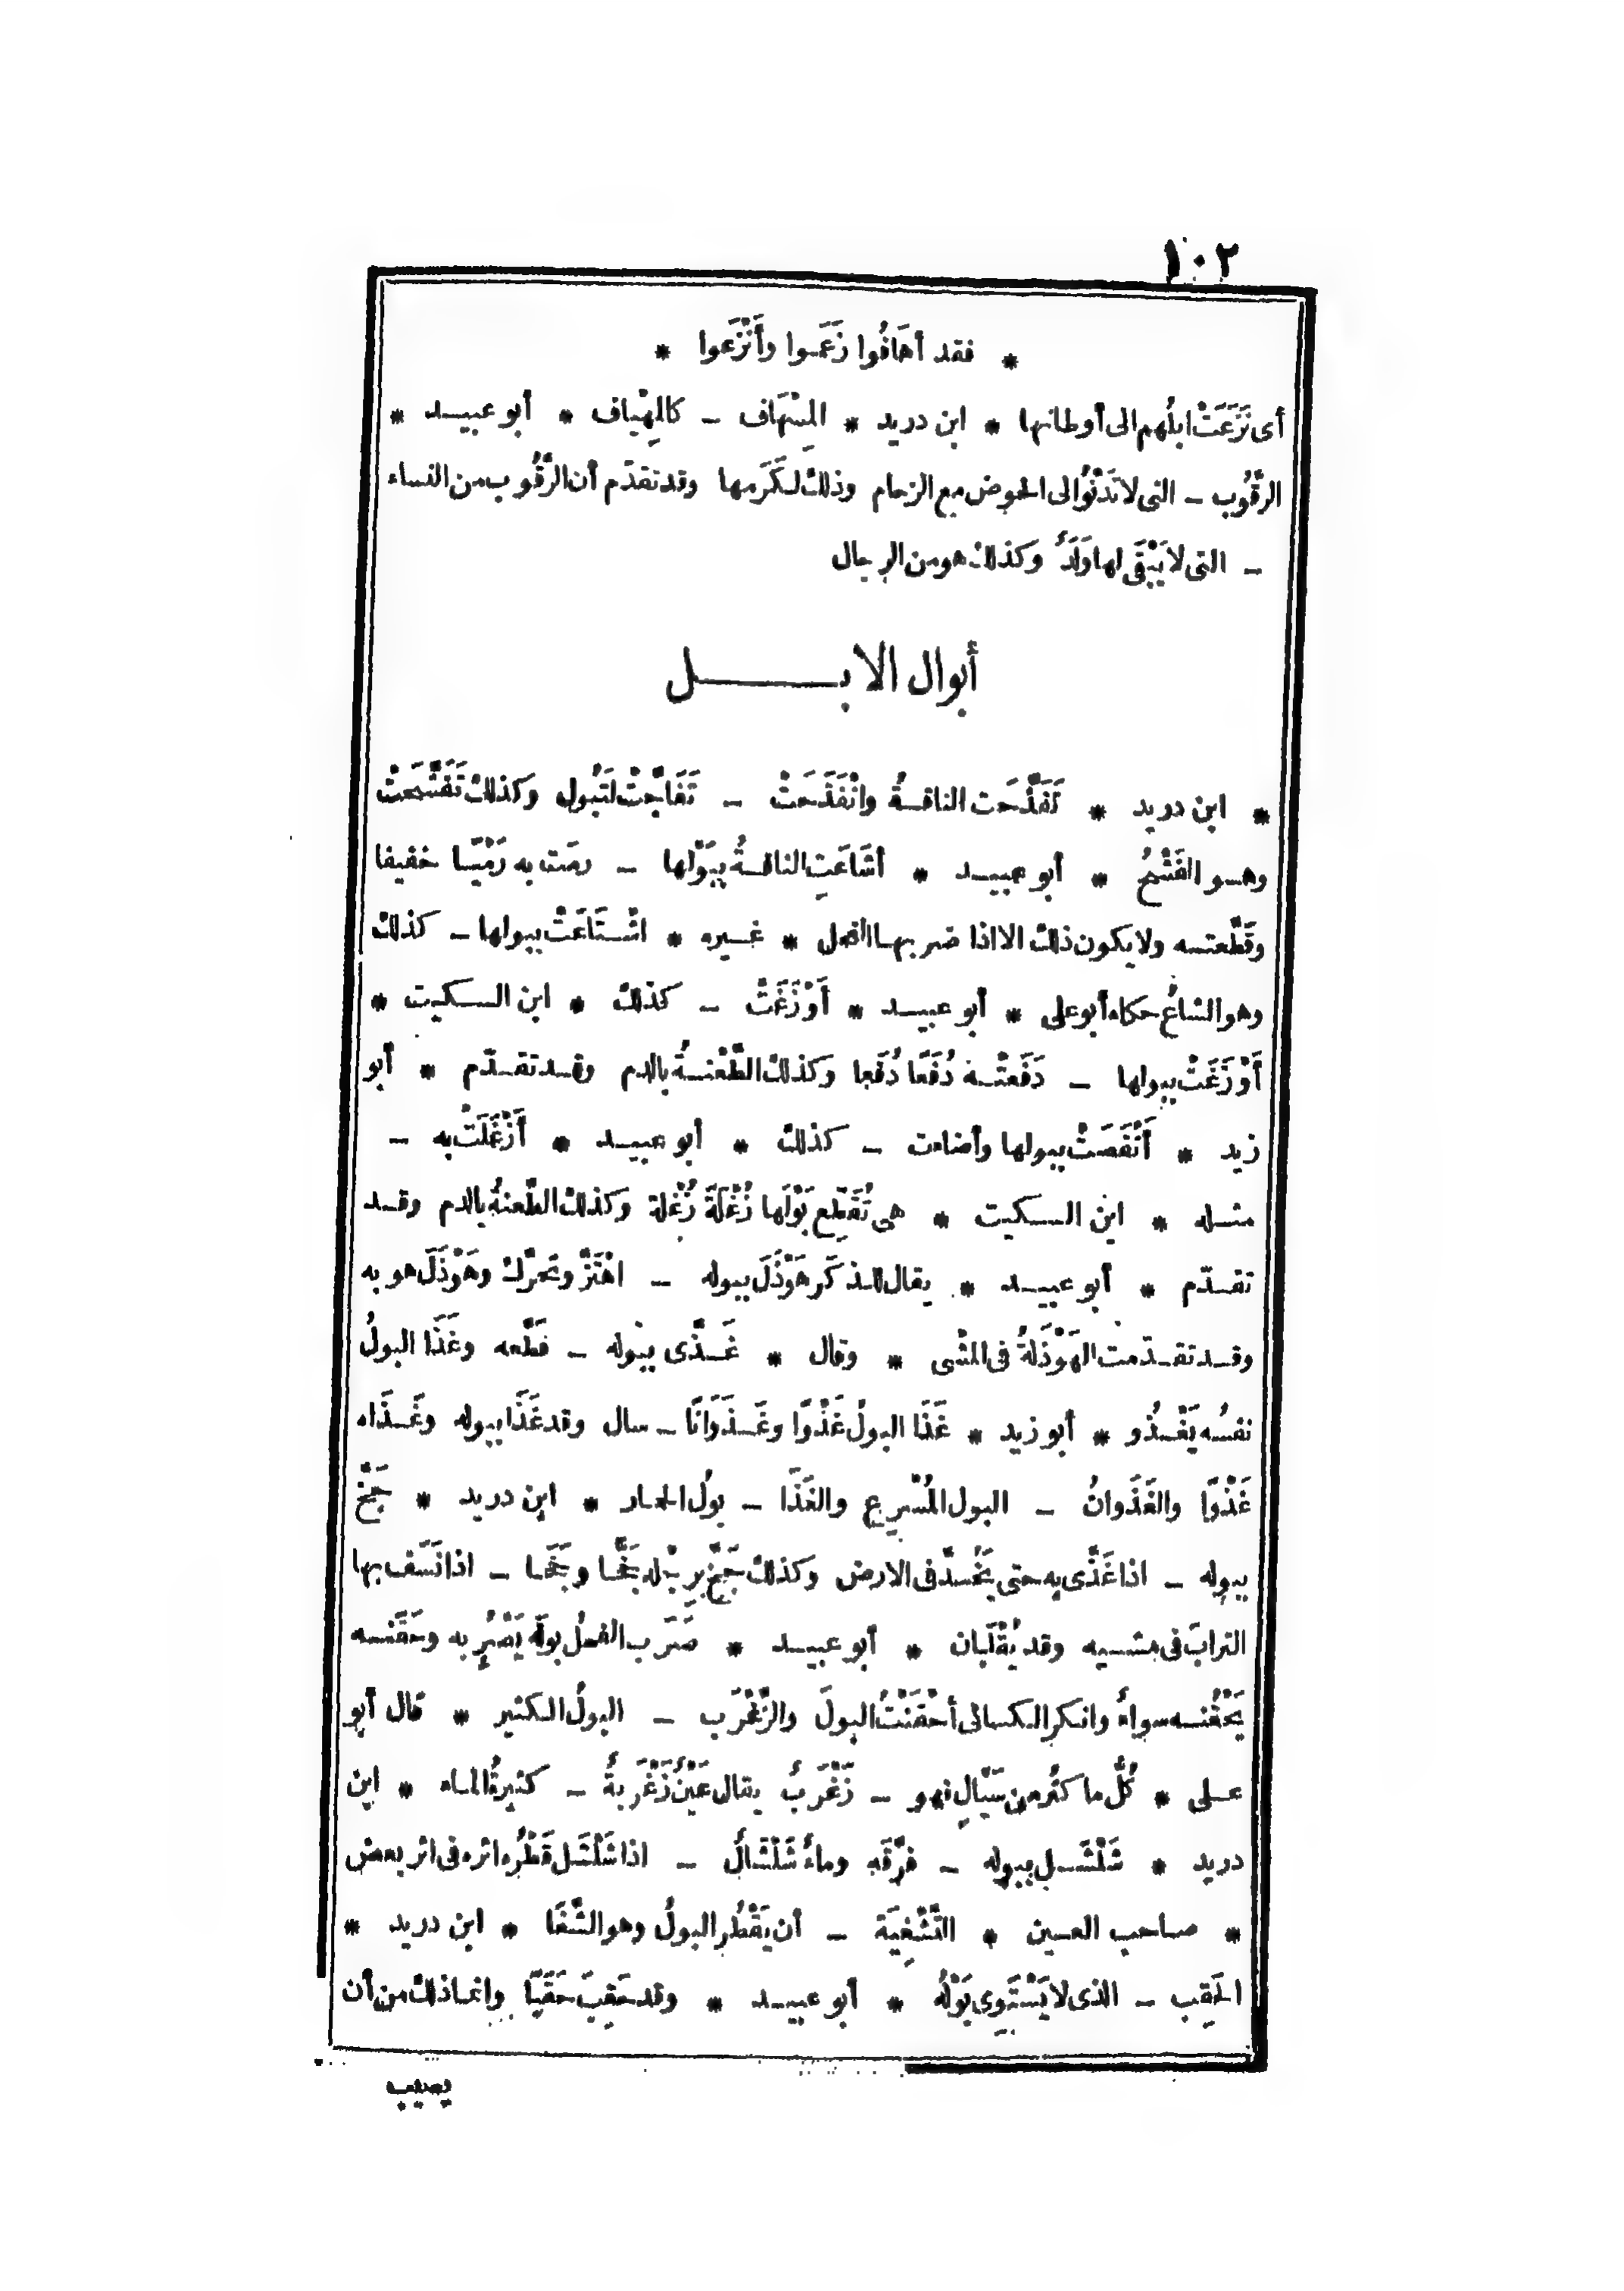 ١٠٢
* فقد أهَافُوا زَعَمُوا وأَنْزَعوا *
أى نَزَعَتْ ابلُهم الى أوطانها * ابن دريد * المِسْهَاف ـ كالمِهْياف * أبو عبيد *
الرَّقُوب ـ التى لا تَدْنُو الى الحوض مع الزحام وذلك لكَرَمها وقد تقدّم أن الرَّقُوب من النساء
ـ التى لا يَبْقَى لها وَلَدٌ وكذلك هو من الرجال
أبوال الابل
* ابن دريد * تَفَذَّحَت الناقةُ وانْفَذَحَتْ ـ تَفَاجَّتْ لتَبُول وكذلك تَفَشَّحَتْ
وهو الفَشْحُ * أبو عبيد * أشَاعَتِ الناقةُ بِبَوْلها ـ رمَت به رَمْيًا خفيفا
وقَطَّعته ولا يكون ذلك الا اذا ضربها الفحل * غيره * اشْتَاعَتْ ببولها ـ كذلك
وهو الشاعُ حكاه أبو على * أبو عبيد * أَوْزَغَتْ ـ كذلك * ابن السكيت *
أَوْزَغَتْ ببولها ـ دَفَعَتْه دُفَعًا دُفَعا وكذلك الطَّعْنةُ بالدم وقد تقدّم * أبو
زيد * أَنْفَصَتْ ببولها وأضاءت ـ كذلك * أبو عبيد * أَزْغَلَتْ به ـ
مثله * ابن السكيت * هى تُقَطِّع بَوْلَها زُغْلَةً زُغْلة وكذلك الطَّعنةُ بالدم وقد
تقدّم * أبو عبيد * يقال للذكَر هَوْذَلَ ببوله ـ اهْتَزَّ وتحرَّك وهَوْذَلَ هو به
وقد تقدّمت الهَوْذَلةُ فى المشْى * وقال * غَذَّى ببوله ـ قَطَّعه وغَذَا البولُ
نفسُه يَغْذُو * أبو زيد * غَذَا البولُ غَذْوًا وغَذَوَانًا ـ سال وقد غَذَا ببوله وغَذَّاه
غَذْوًا والغَذَوانُ ـ البول المُسْرِع والغَذَا ـ بولُ الحمار * ابن دريد * جَخَّ
ببوله ـ اذا غَذَّى به حتى يَخُدَّ فى الارض وكذلك جَخَّ برِجْله جَخًّا وجَخَا ـ اذا نَسَف بها
الترابَ فى مشيه وقد يُقْلَبان * أبو عبيد * صَرَب الفحلُ بولَه يَصْرِبه وحَقَنه
يَحْقُنه سواءٌ وانكر الكسائى أحْقَنْتُ البولَ والزَّغْرَب ـ البولُ الكثير * قال أبو
على * كُلُّ ما كثُر من سَيَّالٍ فهو ـ زَغْرَبٌ يقال عَيْنٌ زَغْرَبةٌ ـ كثيرةُ الماء * ابن
دريد * شَلْشَل ببوله ـ فرَّقَه وماءٌ شَلْشَالٌ ـ اذا شَلْشَل قَطْرُه اثره فى اثر بعض
* صاحب العين * التَّشْغِيَة ـ أن يَقْطُر البولُ وهو الشَّغَا * ابن دريد *
الحَقِب ـ الذى لا يَسْتَوِى بَوْلُه * أبو عبيد * وقد حَقِبَ حَقَبًا وانما ذلك من أن
يصيب